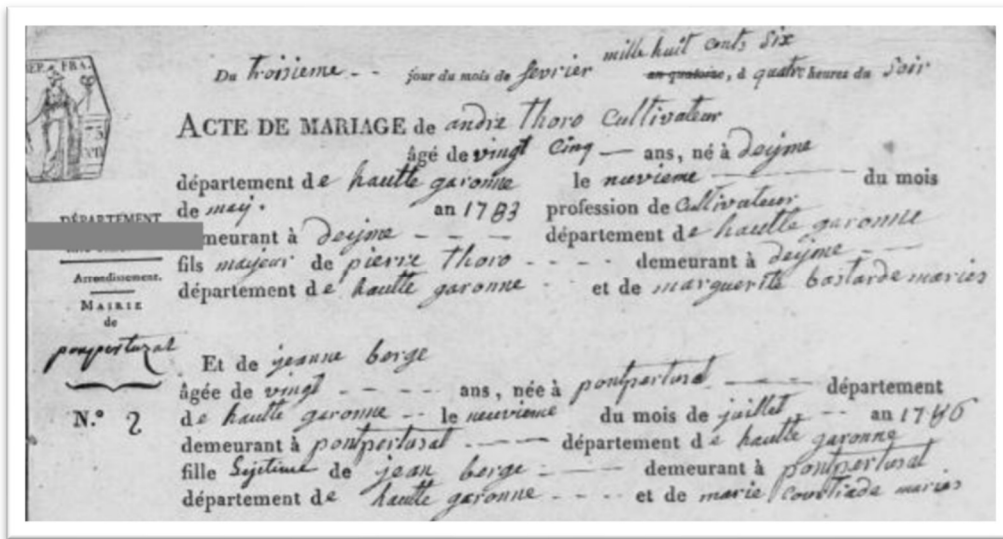 REP. FRA.
75
Du troisieme - - jour du mois de fevrier mille huit cents six
an quatorze, à quatre heures du Soir
ACTE DE MARIAGE de andre thoro Cultivateur
âgé de vingt Cinq — ans, né à deijme
département de hautte garonne le neuvieme — du mois
de maij. an 1783 profession de Cultivateur
DÉPARTEMENT
meurant à deijme - - - département de hautte garonne
fils majeur de pierre thoro - - - - demeurant à deijme - -
Arrondissement.
département de hautte garonne - - et de marguerite bastarde maries
MAIRIE
de
pompertuzat
Et de jeanne berge
âgée de vingt - - - - ans, née à pontpertusat — département
N.° 2
de hautte garonne - - le neuvieme du mois de juillet - - an 1786
demeurant à pontpertusat — département de hautte garonne
fille Lejetime de jean berge - — demeurant à pontpertusat
département de hautte garonne - - - - et de marie Courtiade maries